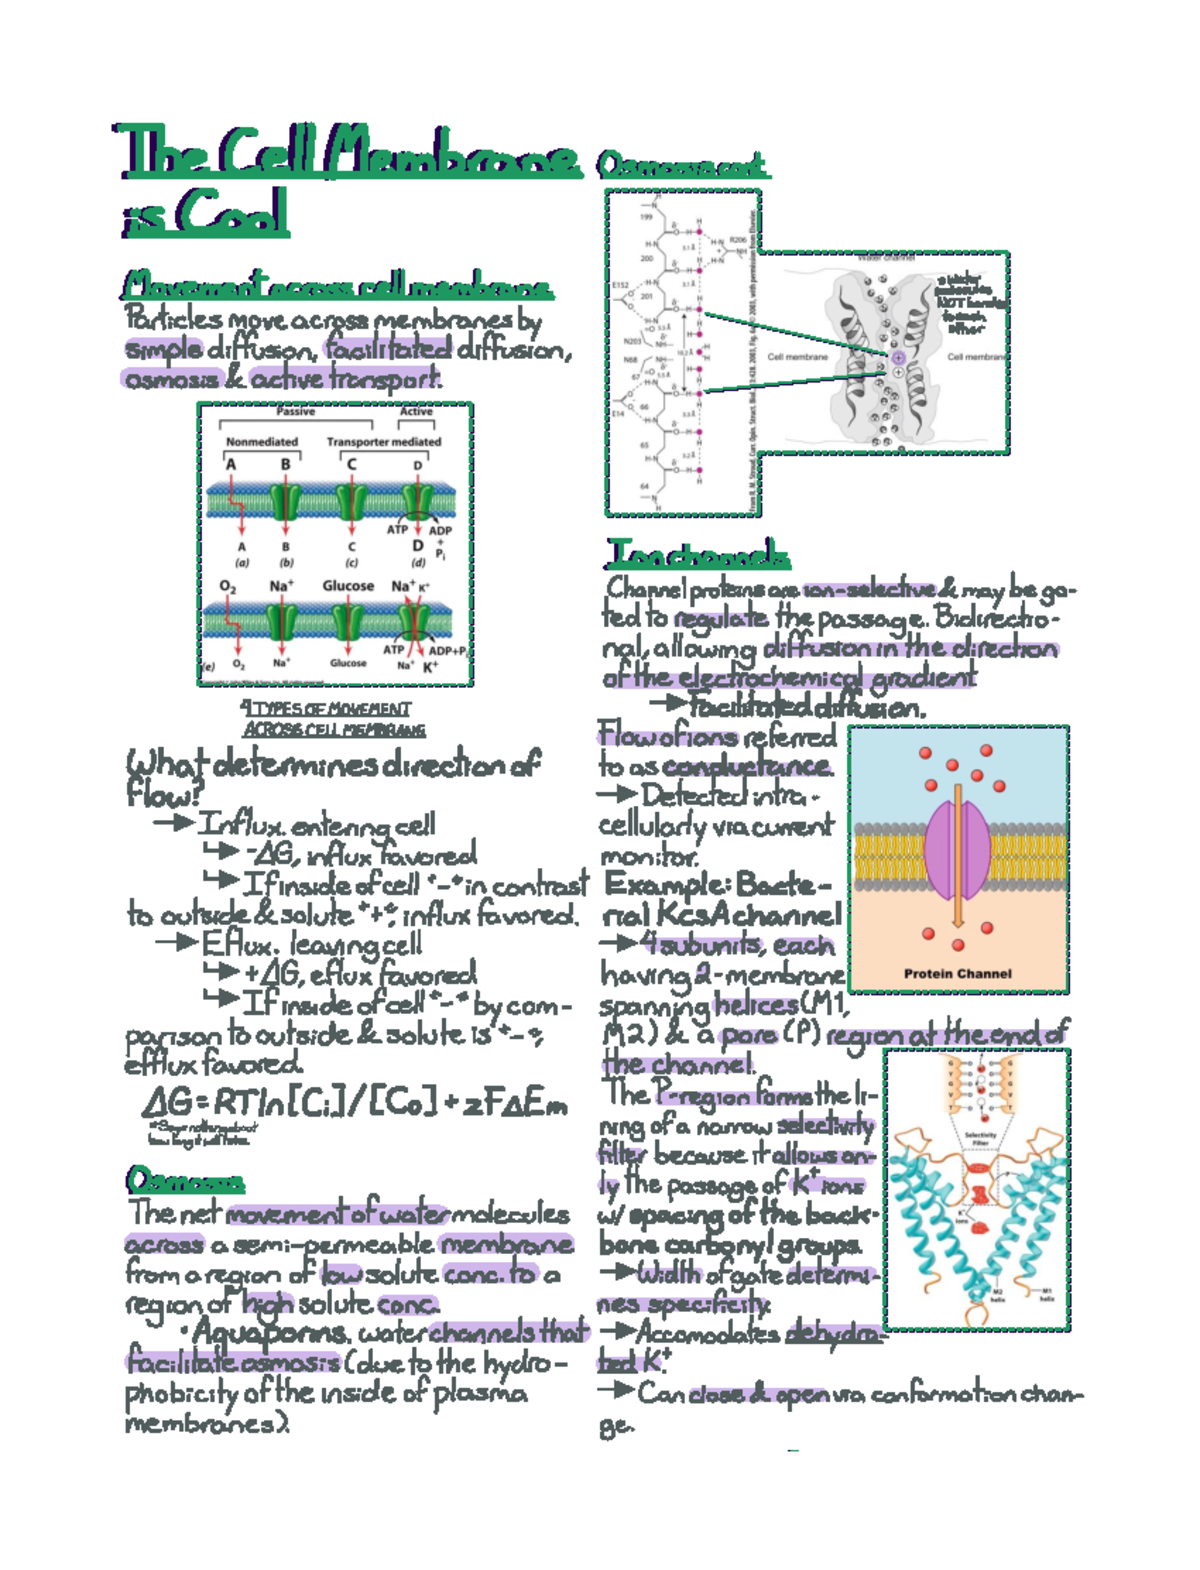 The Cell Membrane
is Cool
Movement across cell membrane
Particles move across membranes by
simple diffusion, facilitated diffusion,
osmosis & active transport.
Passive Active
Nonmediated Transporter mediated
A B C D
ATP ADP
+
Pi
A B C D
(a) (b) (c) (d)
O2 Na+ Glucose Na+ K+
ATP ADP+Pi
(e) O2 Na+ Glucose Na+ K+
4 TYPES OF MOVEMENT
ACROSS CELL MEMBRANE
What determines direction of
flow?
→ Influx. entering cell
↳ -ΔG, influx favored
↳ If inside of cell "-" in contrast
to outside & solute "+", influx favored.
→ Eflux. leaving cell
↳ +ΔG, eflux favored
↳ If inside of cell "-" by com-
parison to outside & solute is "-",
efflux favored.
ΔG = RTln[Ci]/[Co] + zFΔEm
*Says nothing about
how long it will take.
Osmosis
The net movement of water molecules
across a semi-permeable membrane
from a region of low solute conc. to a
region of high solute conc.
• Aquaporins. water channels that
facilitate osmosis (due to the hydro-
phobicity of the inside of plasma
membranes).
Osmosis cont.
199
200
201
E152
R206
N203
N68
67
E14
66
65
64
From R. M. Stroud, Curr. Opin. Struct. Biol. 13:428, 2003, Fig. 6. © 2003, with permission from Elsevier.
Water channel
Cell membrane Cell membrane
* Water
molecules
NOT bonded
to each
other
Ion channels
Channel proteins are ion-selective & may be ga-
ted to regulate the passage. Bidirectio-
nal, allowing diffusion in the direction
of the electrochemical gradient
→ Facilitated diffusion.
Flow of ions referred
to as conductance.
→ Detected intra-
cellularly via current
monitor.
Example: Bacte-
rial KcsA channel
→ 4 subunits, each
having 2-membrane
spanning helices (M1,
M2) & a pore (P) region at the end of
the channel.
Protein Channel
The P-region forms the li-
ning of a narrow selectivity
filter because it allows on-
ly the passage of K+ ions
w/ spacing of the back-
bone carbonyl groups.
→ Width of gate determi-
nes specificity.
→ Accomodates dehydra-
ted K+.
→ Can close & open via conformation chan-
ge.
G G
Y Y
G G
V V
T T
Selectivity
Filter
K+
ions
M2
helix
M1
helix